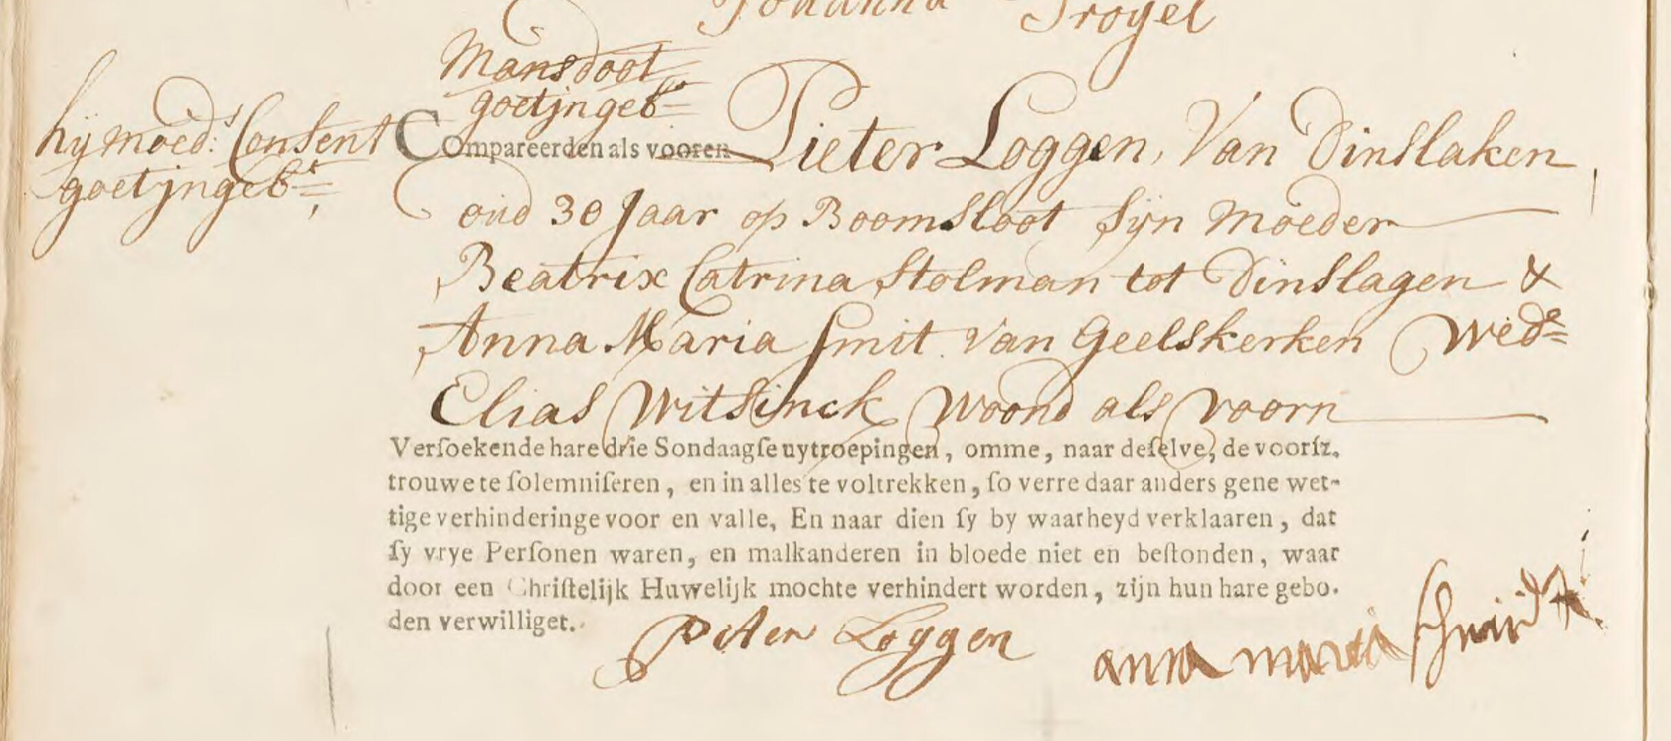 Johanna Troyel
Mans doot
goet jngebt
hij moeds: Consent
goet jngebt,
Compareerden als vooren Pieter Loggen, Van Dinslaken
oud 30 Jaar op Boomsloot Sijn Moeder
Beatrix Catrina Stolman tot Dinslagen &
Anna Maria Smit Van Geelskerken Wede
Elias Witsinck Woond als voorn
Verſoekende hare drie Sondaagſe uytroepingen, omme, naar deſelve, de voorſz.
trouwe te ſolemniſeren, en in alles te voltrekken, ſo verre daar anders gene wet-
tige verhinderinge voor en valle, En naar dien ſy by waarheyd verklaaren, dat
ſy vrye Perſonen waren, en malkanderen in bloede niet en beſtonden, waar
door een Chriſtelijk Huwelijk mochte verhindert worden, zijn hun hare gebo.
den verwilliget.
Piter Loggen
anna maria schmidt